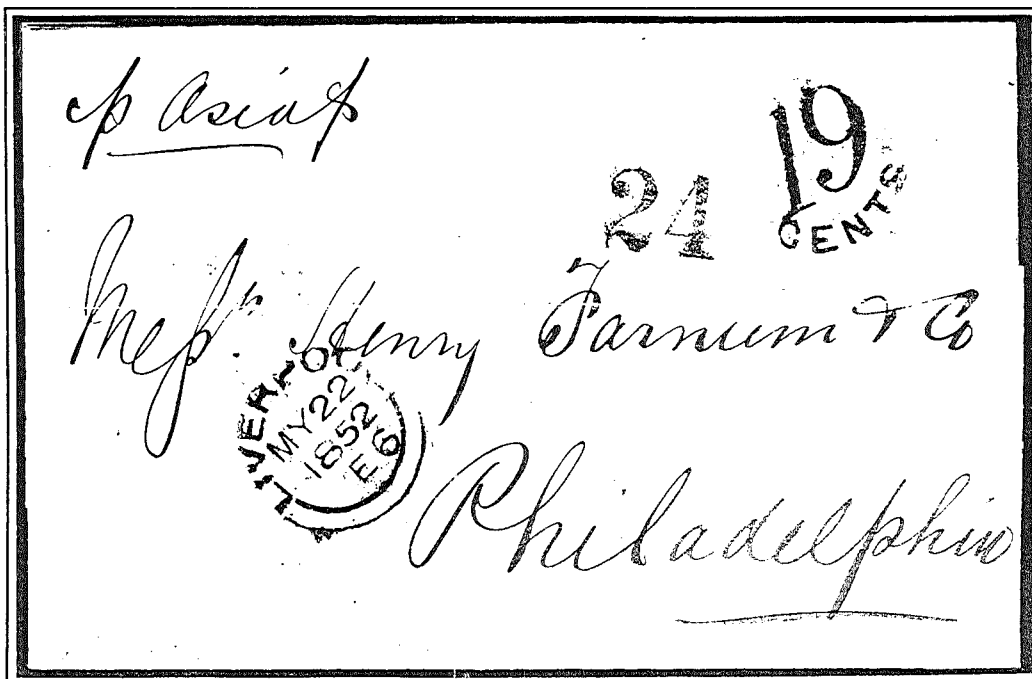 p Asia p
19
CENTS
24
Mess. Henry Farnum & Co
LIVERPOOL
MY 22
1852
E6
Philadelphia